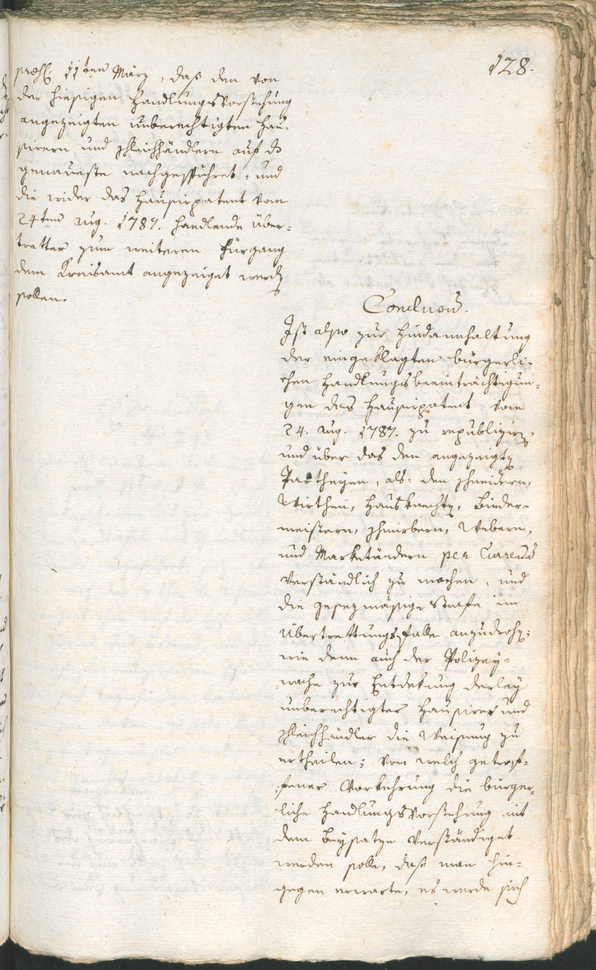 128.
praes. 11ten März, daß den von
der hiesigen Handlungsvorstehung
angezeigten unberechtigten Hau-
sierern und Schleichhändlern auf das
genaueste nachgespühret, und
die wider das Hausierpatent vom
24ten Aug. 1787. handlende Über-
tretter zum weiteren Fürgang
dem Kreisamt angezeiget werden
sollen.
Conclusum.
Ist also zur Hindannhaltung
der eingeklagten bürgerli-
chen Handlungsbeeinträchtigun-
gen das Hausierpatent vom
24. Aug. 1787. zu republiziren,
und über das den angezeigten
Partheyen, als: den Schneidern,
Wirthen, Hausknechten, Binder-
meistern, Webern,
und Marketändern per Currendas
verständlich zu machen, und
die gesezmäßige Strafe im
Übertrettungsfalle anzudrohen;
wie denn auch der Polizey-
wache zur Entdekung derley
unberechtigter Hausirer und
Schleichhändler die Weisung zu
ertheilen; von welch getrof-
fener Vorkehrung die bürger-
liche Handlungsvorstehung mit
dem Beysatze verständiget
werden solle, daß man hin-
gegen erwarte, es werde sich